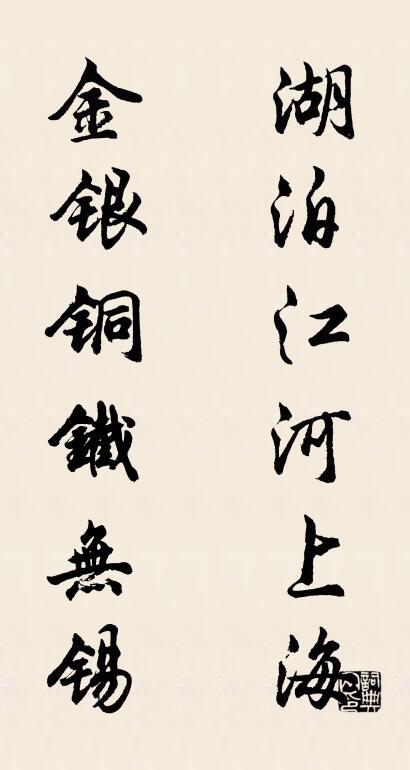 湖泊江河上海
金银铜鐵無锡